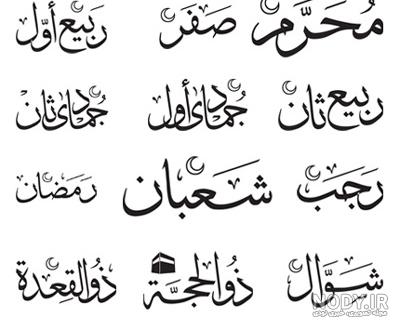 مُحَرَّم صفَر رَبيع أوّل
رَبيع ثان جُمادى أول جُمادى ثان
رَجَب شَعبان رَمَضان
شَوّال ذُو الحجَّة ذُو القِعدَة
NODY.IR